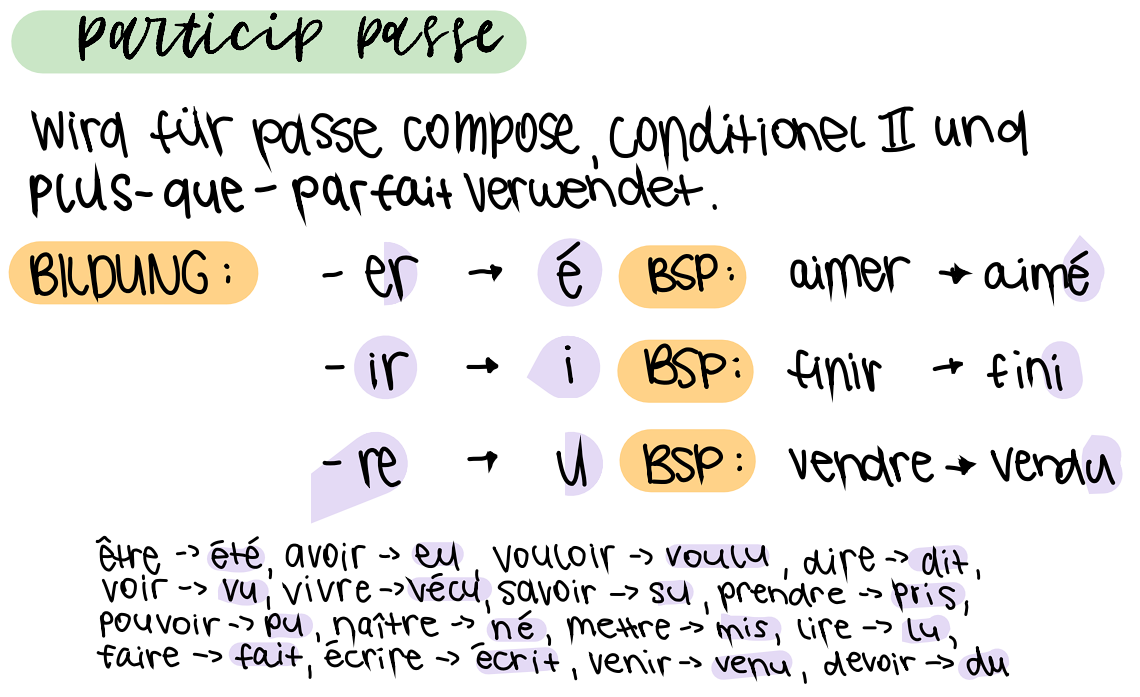 particip passe
wird für passe compose, conditionel II und
plus-que-parfait verwendet.
BILDUNG: - er → é BSP: aimer → aimé
- ir → i BSP: finir → fini
- re → u BSP: vendre → vendu
être -> été, avoir -> eu, vouloir -> voulu, dire -> dit,
voir -> vu, vivre -> vécu, savoir -> su, prendre -> pris,
pouvoir -> pu, naître -> né, mettre -> mis, lire -> lu,
faire -> fait, écrire -> écrit, venir -> venu, devoir -> du